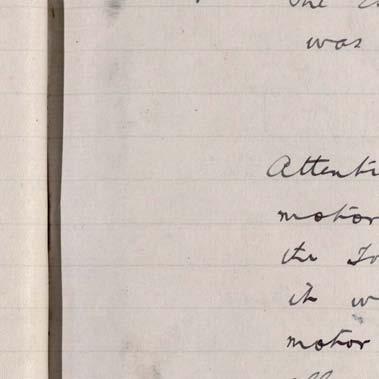 was
Attenti
motor
the To
it w
motor